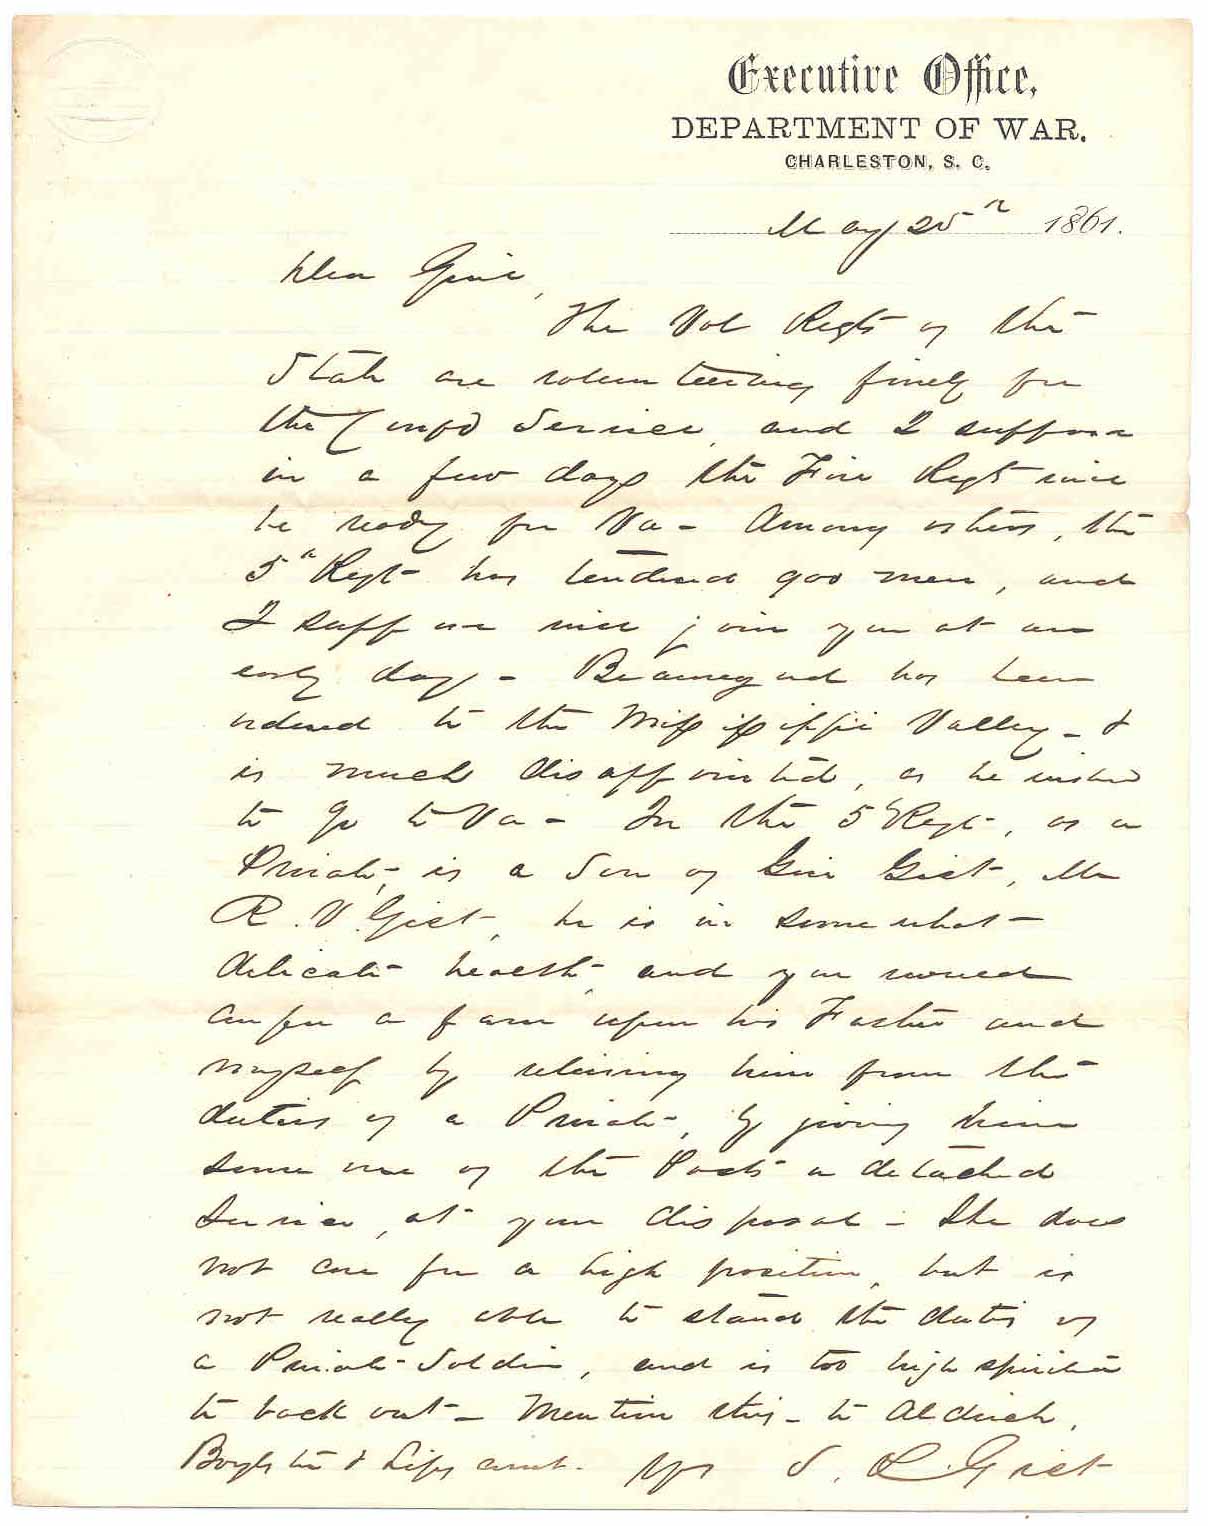 Executive Office,
DEPARTMENT OF WAR.
CHARLESTON, S. C.
May 25th 1861.
Dear Genl,
The Vol Regts of the
State are volunteering finely for
the Confd Service, and I suppose
in a few days the Five Regts will
be ready for Va - Among others, the
5th Regt has tendered 900 men, and
I suppose will join you at an
early day - Beauregard has been
ordered to the Mississippi Valley - &
is much disappointed, as he wished
to go to Va - In the 5th Regt, as a
Private, is a Son of Gov Gist, Mr
R. V. Gist, he is in somewhat
delicate health, and you would
confer a favor upon his Father and
myself by relieving him from the
duties of a Private, by giving him
some one of the Posts or detached
Service, at your disposal - He does
not care for a high position, but is
not really able to stand the duties of
a Private Soldier, and is too high spirited
to back out - Mention this to Aldrich,
& Lipscomb. Yrs S. R. Gist